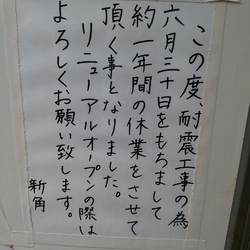 この度、耐震工事の為
六月三十日をもちまして
約一年間の休業をさせて
頂く事となりました。
リニューアルオープンの際は
よろしくお願い致します。
新角